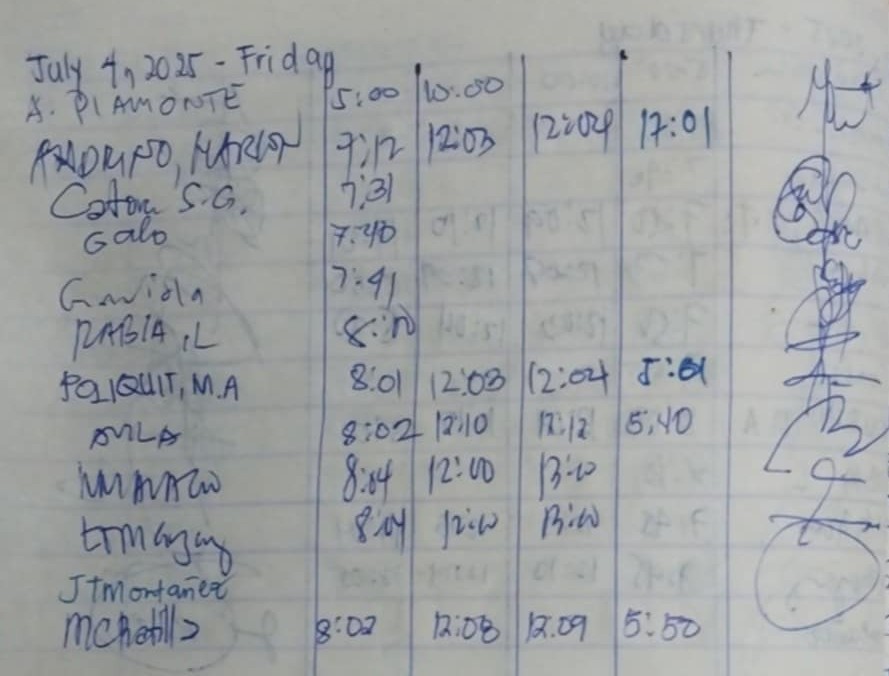 July 4, 2025 - Friday
A. PIAMONTE 5:00 10:00
MARLON 7:12 12:03 12:04 17:01
S.G. 7:31
Galo 7:40
Gaviola 7:41
RABIA, L 8:00
POLIQUIT, M.A 8:01 12:03 12:04 5:01
AVILA 8:02 12:10 12:12 5:40
8:04 12:00 13:00
8:04 12:00 13:00
JTMontañez
8:02 12:08 12:09 5:50